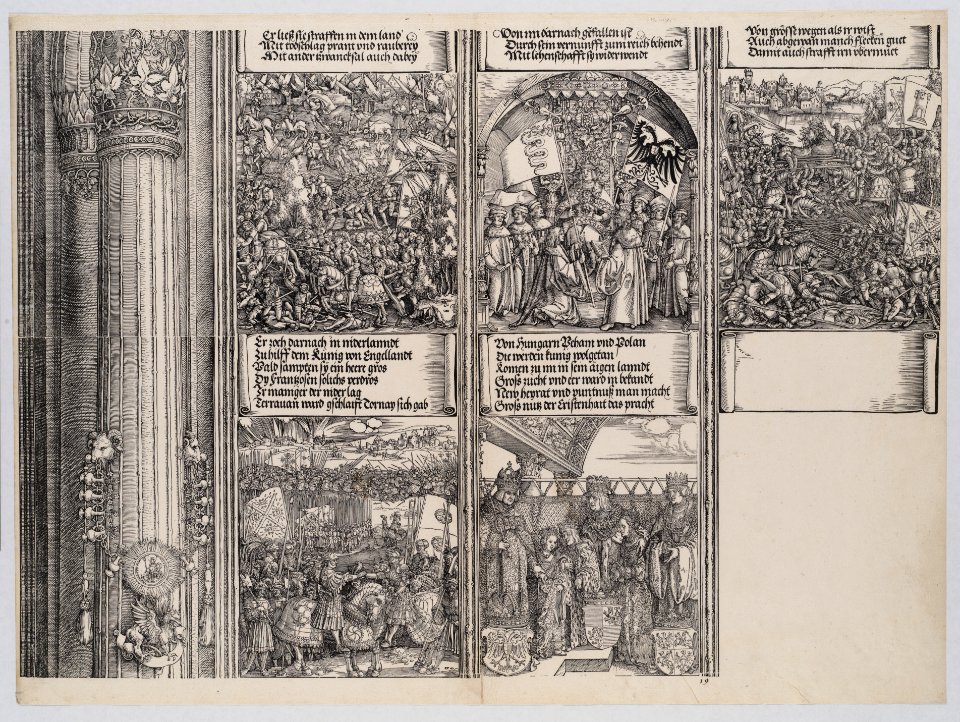 Er ließ sie straffen in dem land
Mit todschlag prant und rauberey
Mit ander zwancksal auch dabey
Von im darnach gefallen ist
Durch sein vernunfft zum reich behendt
Mit lehenschafft sy wider wendt
Von grösse wegen als ir wist
Auch abgewan manch flecken guet
Damit auch strafft irn übermuet
Er zoch darnach in niderlanndt
Zu hilff dem Künig von Engellandt
Bald sampten sy ein heere gros
Dy Frantzosen solichs verdros
Ir mainger der nider lag
Terrauan ward gschlaift Tornay sich gab
Von Hungarn Beham und Polan
Die werden kunig wolgetan
Komen zu im in sein aigen lanndt
Groß zucht und eer ward in bekandt
New heyrat und puntnuß man macht
Groß nutz der Cristenhait das pracht
19